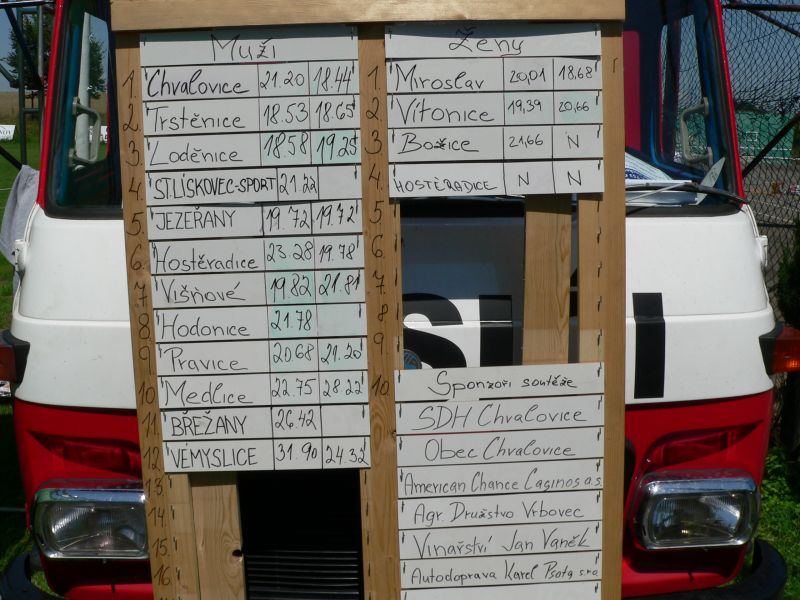 Muži
1. Chvalovice 21.20 18.44
2. Trstěnice 18.53 18.65
3. Loděnice 18.58 19.25
4. ST.LÍSKOVEC-SPORT 21.22
5. JEZEŘANY 19.72 19.72
6. Hostěradice 23.28 19.78
7. Višňové 19.82 21.81
8. Hodonice 21.78
9. Pravice 20.68 21.20
10. Medlice 22.75 28.22
11. BŘEŽANY 26.42
12. VÉMYSLICE 31.90 24.32
13.
14.
15.
16.
Ženy
1. Miroslav 20,01 18,68
2. Vítonice 19,39 20,66
3. Božice 21,66 N
4. HOSTĚRADICE N N
5
6.
7.
8.
9.
10.
Sponzoři soutěže
SDH Chvalovice
Obec Chvalovice
American Chance Casinos a.s.
Agr. Družstvo Vrbovec
Vinařství Jan Vaněk
Autodoprava Karel Psota s.r.o